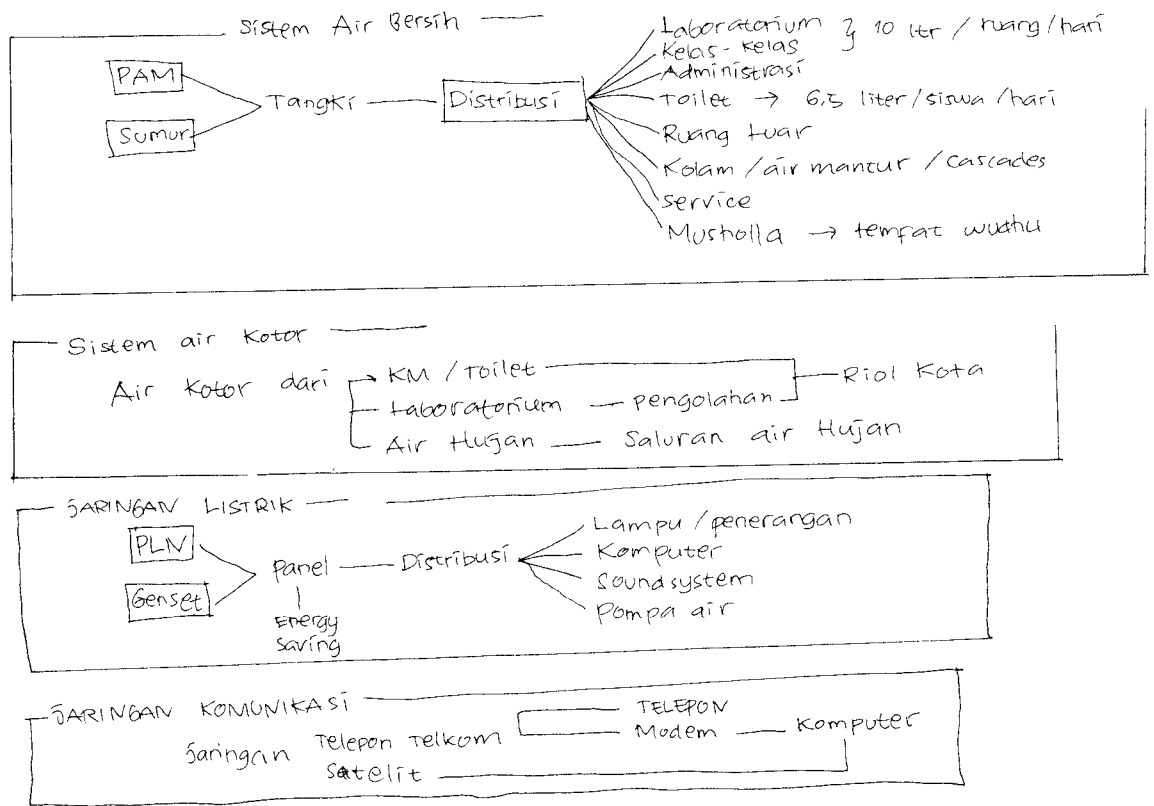 Sistem Air Bersih
Laboratorium } 10 ltr / ruang/hari
Kelas-kelas
Administrasi
PAM
Tangki
Distribusi
Toilet → 6,5 liter/siswa/hari
Sumur
Ruang luar
Kolam/air mancur/cascades
service
Musholla → tempat wudhu
Sistem air kotor
Air kotor dari
KM / Toilet
Riol Kota
Laboratorium
pengolahan
Air Hujan
Saluran air Hujan
JARINGAN LISTRIK
PLN
Genset
Panel
Energy
Saving
Distribusi
Lampu/penerangan
Komputer
Soundsystem
Pompa air
JARINGAN KOMUNIKASI
Jaringan Telepon Telkom
TELEPON
Modem
Komputer
Satelit